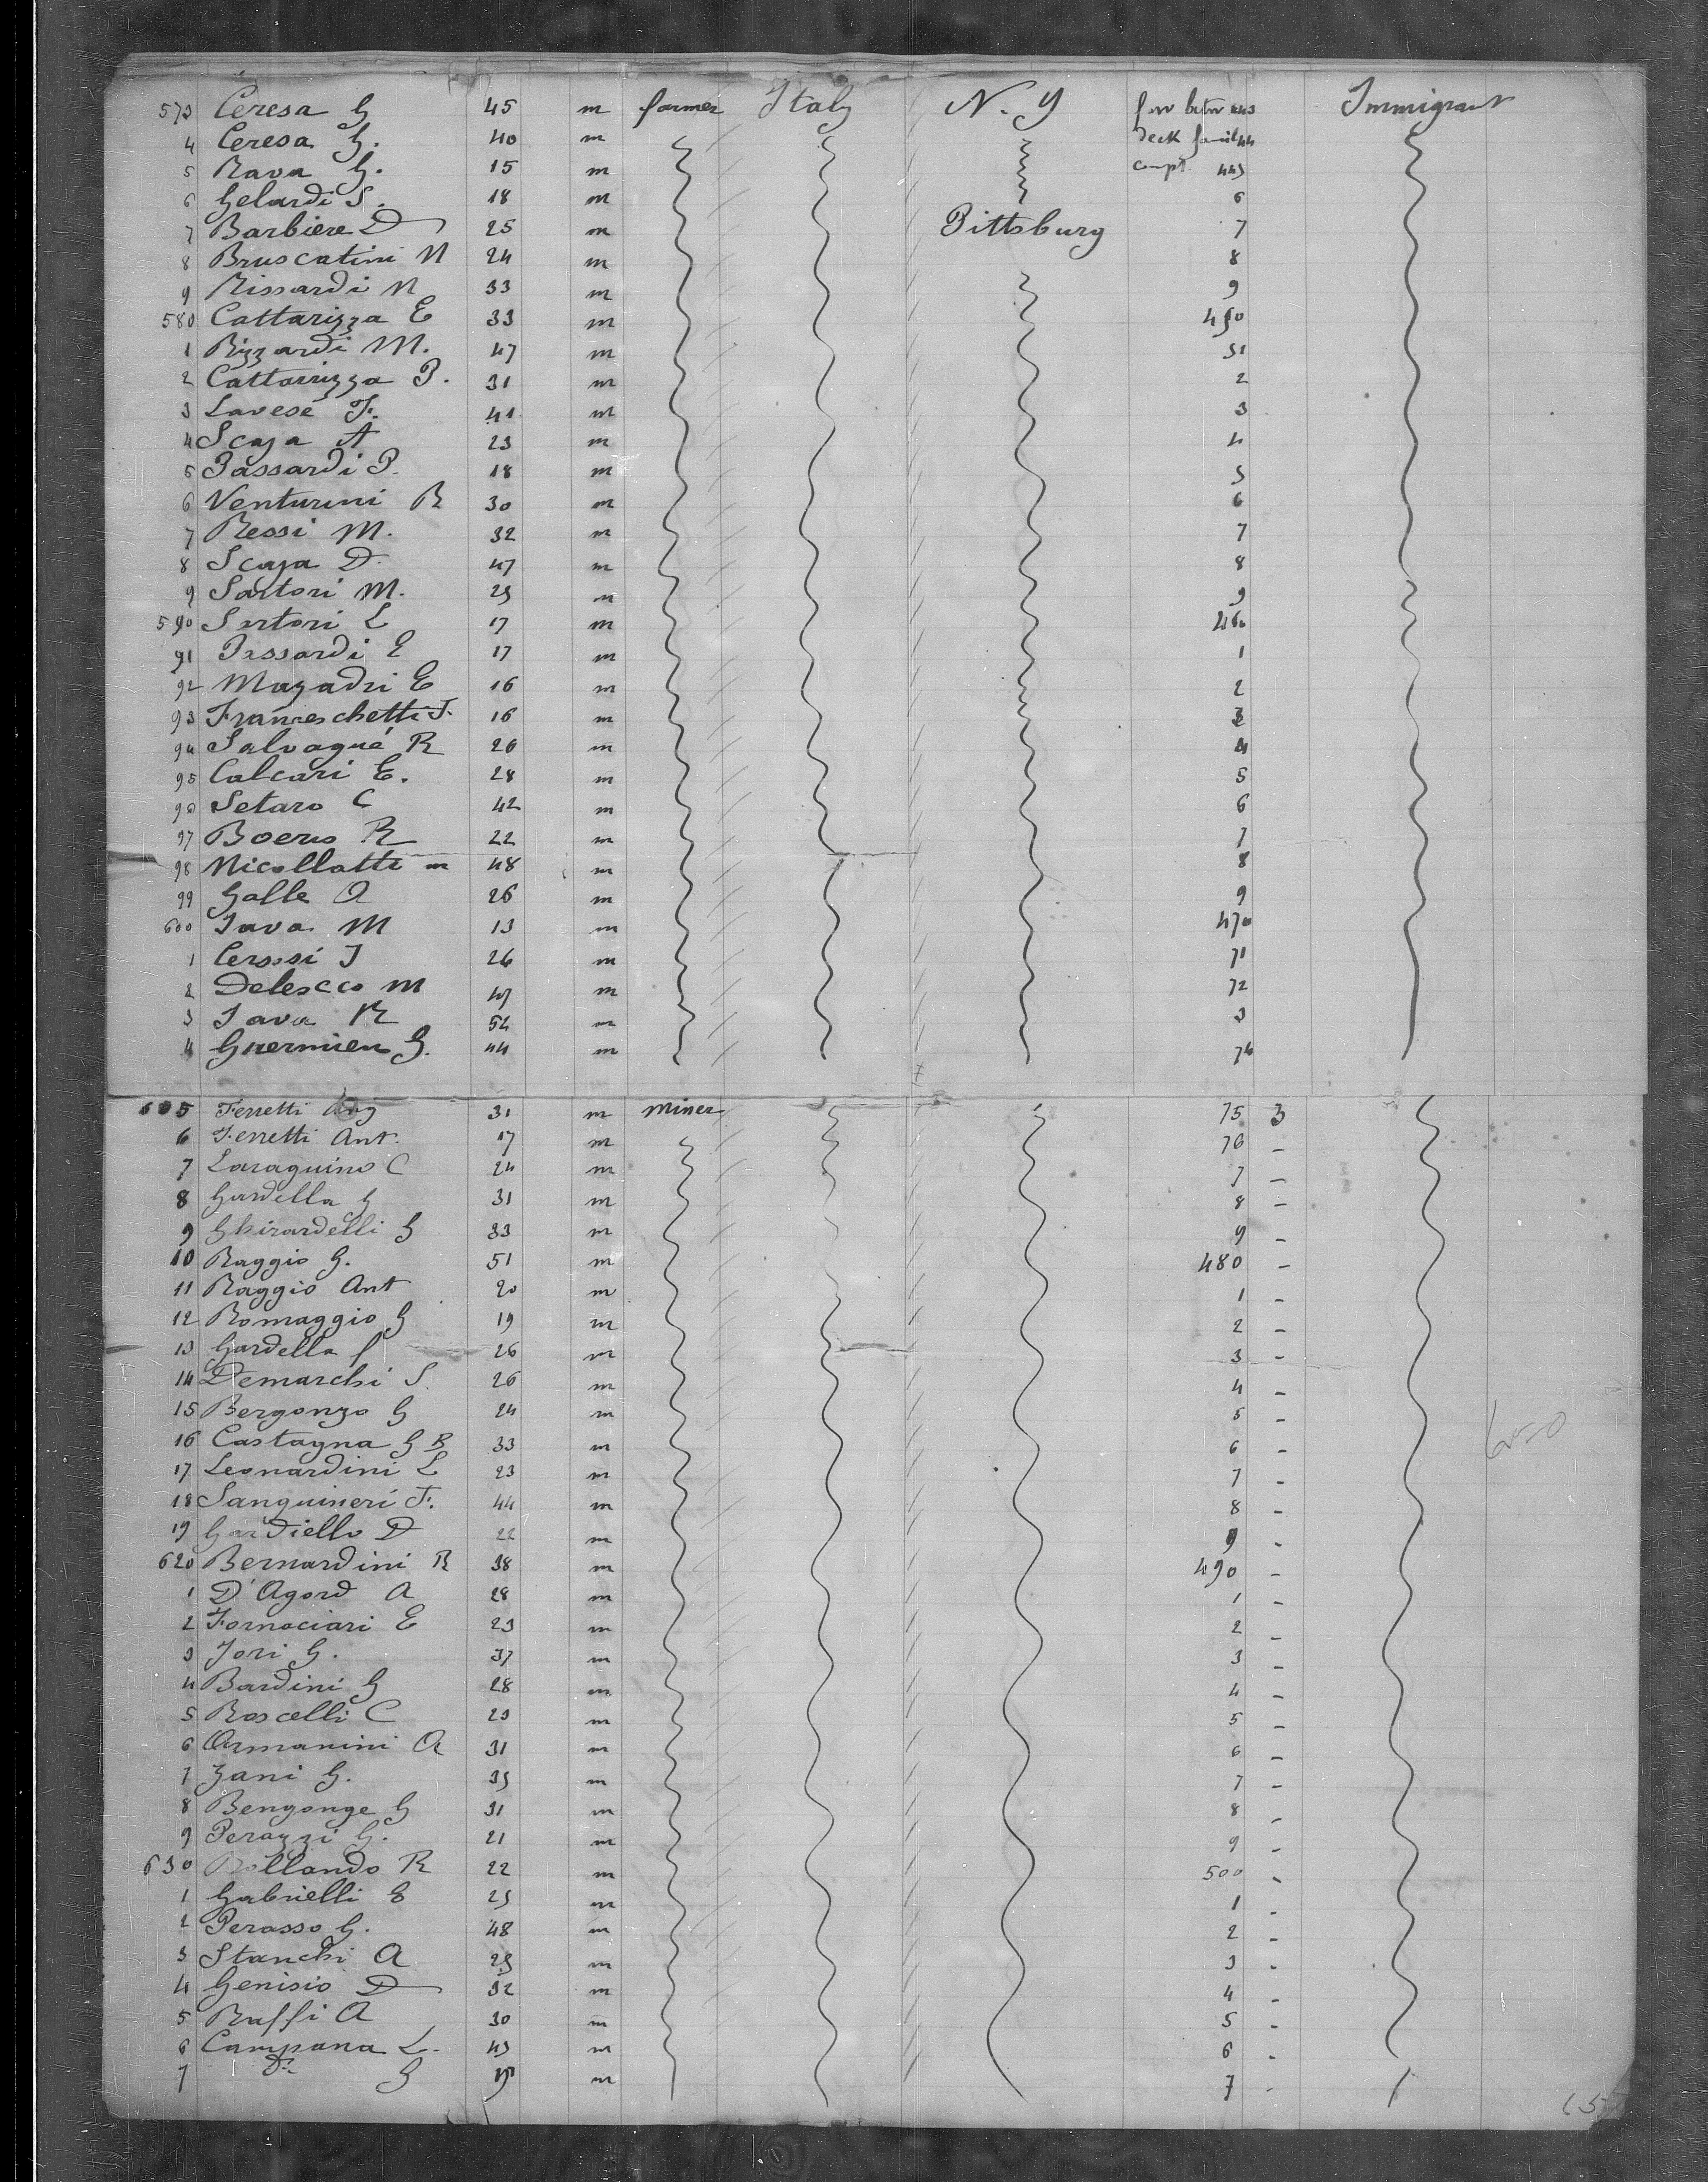 573 Ceresa G 45 m farmer Italy N. Y for betw 443 Immigrant
4 Ceresa G. 40 m deck famil 44
5 Rava G. 15 m compt 445
6 Gelardi S. 18 m 6
7 Barbiere D 25 m Pittsburg 7
8 Bruscatini N 24 m 8
9 Rissardi N 33 m 9
580 Cattarizza E 33 m 450
1 Rizzardi M. 47 m 51
2 Cattarizza P. 31 m 2
3 Lavese F. 41 m 3
4 Scaja A 23 m 4
5 Passardi P. 18 m 5
6 Venturini R 30 m 6
7 Ressi M. 32 m 7
8 Scaja D. 47 m 8
9 Sartori M. 25 m 9
590 Sartori L 17 m 460
91 Passardi E 17 m 1
92 Mazadri E 16 m 2
93 Franceschetti F. 16 m 3
94 Salvagné R 26 m 4
95 Calcari E. 28 m 5
96 Setaro C 42 m 6
97 Boero R 22 m 7
98 Nicollatti m 48 m 8
99 Galle A 26 m 9
600 Java M 13 m 470
1 Cersosi J 26 m 71
2 Delescco M 47 m 72
3 Java R 52 m 3
4 Guermieu G. 44 m 74
605 Ferretti Ang 31 m miner 75 3
6 Ferretti Ant. 17 m 76 -
7 Laraguino C 24 m 7 -
8 Gardella G 31 m 8 -
9 Ghirardelli G 33 m 9 -
10 Raggio G. 51 m 480 -
11 Raggio Ant 20 m 1 -
12 Romaggio G 19 m 2 -
13 Gardella f 26 m 3 -
14 Demarchi S. 26 m 4 -
15 Bergonzo G 24 m 5 -
16 Castagna G B 33 m 6 -
17 Leonardini L 23 m 7 -
18 Sanguineri F. 44 m 8 -
19 Gardiello D 22 m 9 -
620 Bernardini R 38 m 490 -
1 D'Agord A 28 m 1 -
2 Fornaciari E 23 m 2 -
3 Jori G. 37 m 3 -
4 Bardini G 28 m 4 -
5 Roscelli C 29 m 5 -
6 Armanini A 31 m 6 -
7 Zani G. 35 m 7 -
8 Bengonge G 31 m 8 -
9 Perazzi G. 21 m 9 -
630 Rollando R 22 m 500 -
1 Gabrielli E 25 m 1 -
2 Perasso G. 48 m 2 -
3 Stanchi A 25 m 3 -
4 Genisio D 32 m 4 -
5 Raffi A 30 m 5 -
6 Campana L. 43 m 6 -
7 G m 7 -